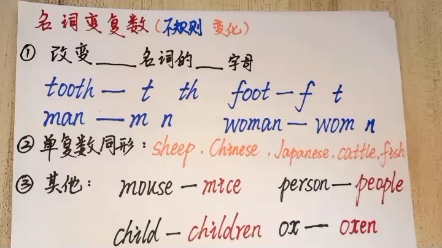 名词变复数(不规则变化)
① 改变____名词的__字母
tooth — t  th  foot — f  t
man — m n  woman — wom n
② 单复数同形: sheep, Chinese, Japanese, cattle, fish
③ 其他: mouse — mice  person — people
child — children  ox — oxen